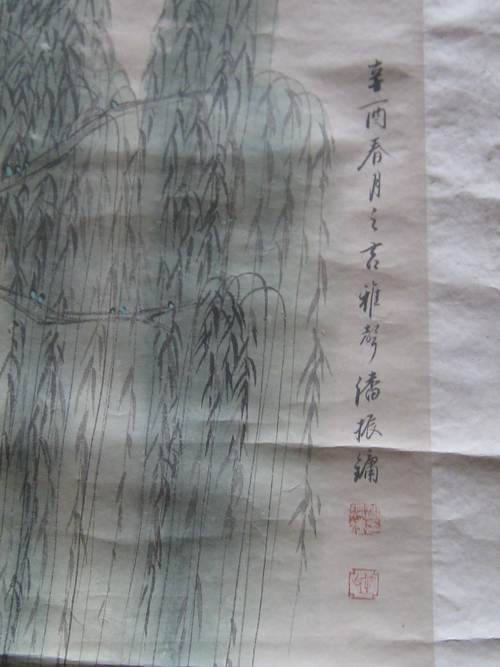 辛酉春月之吉雅聲潘振鏞